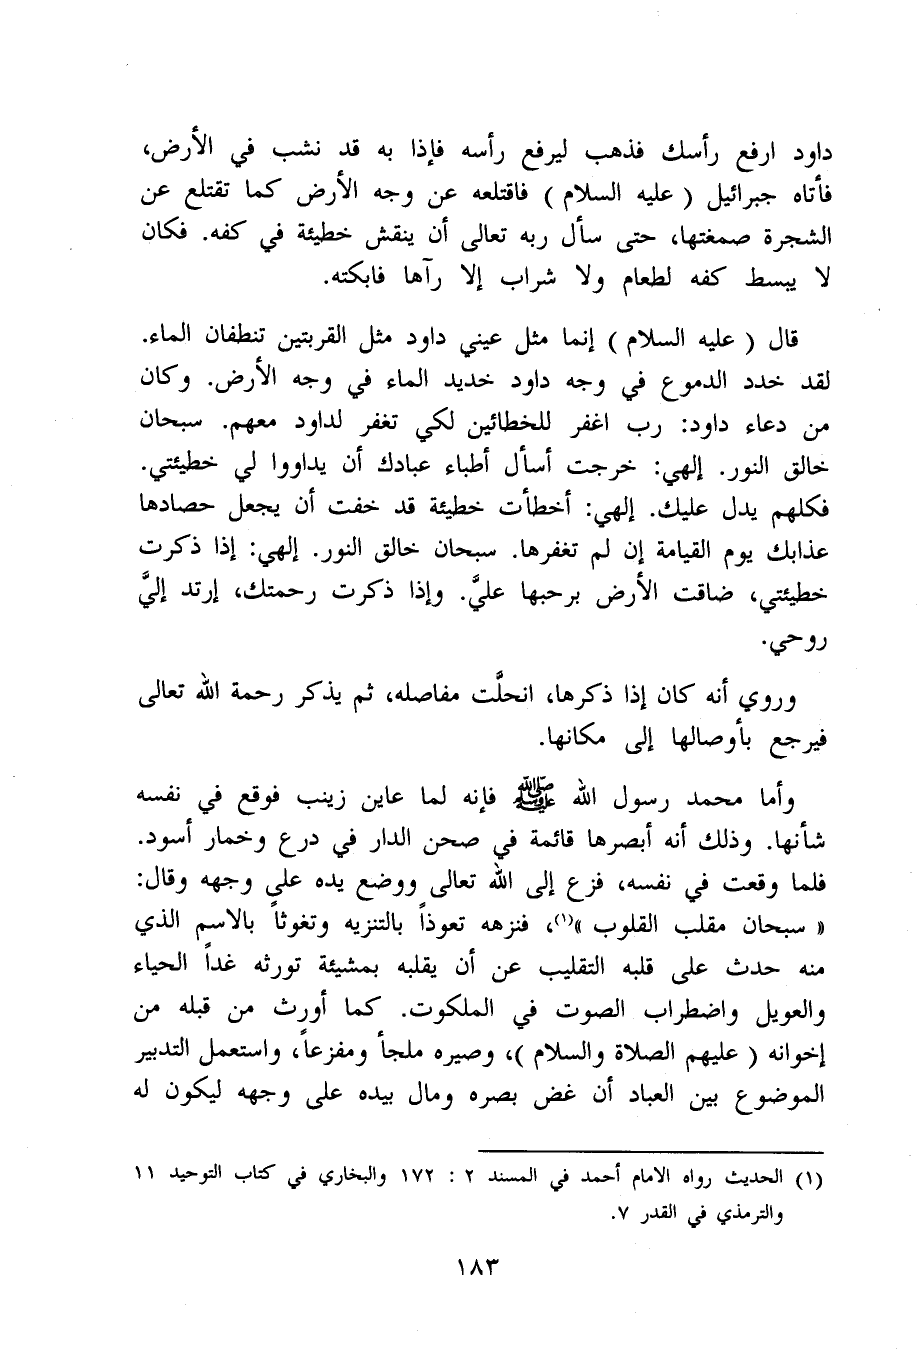 داود ارفع رأسك فذهب ليرفع رأسه فإذا به قد نشب في الأرض،
فأتاه جبرائيل ( عليه السلام ) فاقتلعه عن وجه الأرض كما تقتلع عن
الشجرة صمغتها، حتى سأل ربه تعالى أن ينقش خطيئة في كفه. فكان
لا يبسط كفه لطعام ولا شراب إلا رآها فابكته.
قال ( عليه السلام ) إنما مثل عيني داود مثل القربتين تنطفان الماء.
لقد خدد الدموع في وجه داود خديد الماء في وجه الأرض. وكان
من دعاء داود: رب اغفر للخطائين لكي تغفر لداود معهم. سبحان
خالق النور. إلهي: خرجت أسأل أطباء عبادك أن يداووا لي خطيئتي.
فكلهم يدل عليك. إلهي: أخطأت خطيئة قد خفت أن يجعل حصادها
عذابك يوم القيامة إن لم تغفرها. سبحان خالق النور. إلهي: إذا ذكرت
خطيئتي، ضاقت الأرض برحبها عليَّ. وإذا ذكرت رحمتك، إرتد إليَّ
روحي.
وروي أنه كان إذا ذكرها، انحلَّت مفاصله، ثم يذكر رحمة الله تعالى
فيرجع بأوصالها إلى مكانها.
وأما محمد رسول الله ﷺ فإنه لما عاين زينب فوقع في نفسه
شأنها. وذلك أنه أبصرها قائمة في صحن الدار في درع وخمار أسود.
فلما وقعت في نفسه، فزع إلى الله تعالى ووضع يده على وجهه وقال:
« سبحان مقلب القلوب »(١)، فنزهه تعوذاً بالتنزيه وتغوثاً بالاسم الذي
منه حدث على قلبه التقليب عن أن يقلبه بمشيئة تورثه غداً الحياء
والعويل واضطراب الصوت في الملكوت. كما أورث من قبله من
إخوانه ( عليهم الصلاة والسلام )، وصيره ملجأ ومفزعاً، واستعمل التدبير
الموضوع بين العباد أن غض بصره ومال بيده على وجهه ليكون له
(١) الحديث رواه الامام أحمد في المسند ٢ : ١٧٢ والبخاري في كتاب التوحيد ١١
والترمذي في القدر ٧.
١٨٣